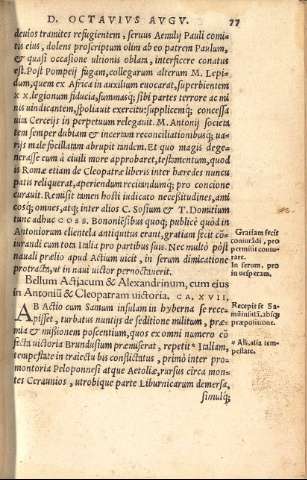 D. OCTAVIUS AUGV. 77
deuios tramites refugientem, seruus Aemilij Pauli comi
tis eius, dolens proscriptum olim ab eo patrem Paulum,
& quasi occasione ultionis oblata, interficere conatus
est. Post Pompeij fugam, collegarum alterum M. Lepi-
dum, quem ex Africa in auxilium euocarat, superbientem
xx. legionum fiducia, summasq; sibi partes terrore ac mi
nis uindicantem, spoliauit exercitu: supplicemq; concessa
uita Cerceijs in perpetuum relegauit. M. Antonij societa
tem semper dubiam & incertam reconciliationibusq; ua-
rijs male focillatam abrupit tandem. Et quo magis dege-
nerasse eum à ciuili more approbaret, testamentum, quod
is Romæ etiam de Cleopatræ liberis inter hæredes nuncu
patis reliquerat, aperiendum recitandumq; pro concione
curauit. Remisit tamen hosti iudicato necessitudines, ami
cosq; omnes, atq; inter alios C. Sosium & T. Domitium
tunc adhuc COSS. Bononiensibus quoq; publicè quòd in
Antoniorum clientela antiquitus erant, gratiam fecit co
iurandi cum tota Italia pro partibus suis. Nec multò pòst
nauali prælio apud Actium uicit, in serum dimicatione
protracta, ut in naui uictor pernoctauerit.
Gratiam fecit
coniurādi, pro
permisit coniu-
rare.
In serum, pro
in vesperam.
Bellum Actiacum & Alexandrinum, cum eius
in Antoniū & Cleopatram uictoria. CA. XVII.
AB Actio cum Samum insulam in hyberna se rece-
pisset, turbatus nuntijs de seditione militum, præ-
mia & missionem poscentium, quos ex omni numero cō
fecta victoria Brundusium præmiserat, repetit * Italiam,
tempestate in traiectu bis conflictatus, primò inter pro-
montoria Peloponnesi atque Aetoliæ, rursus circa mon-
tes Ceraunios, utrobique parte Liburnicarum demersa,
simulq;
Recepisse Sa-
mū
præpositione.
* Ali. alia tem-
pestate.